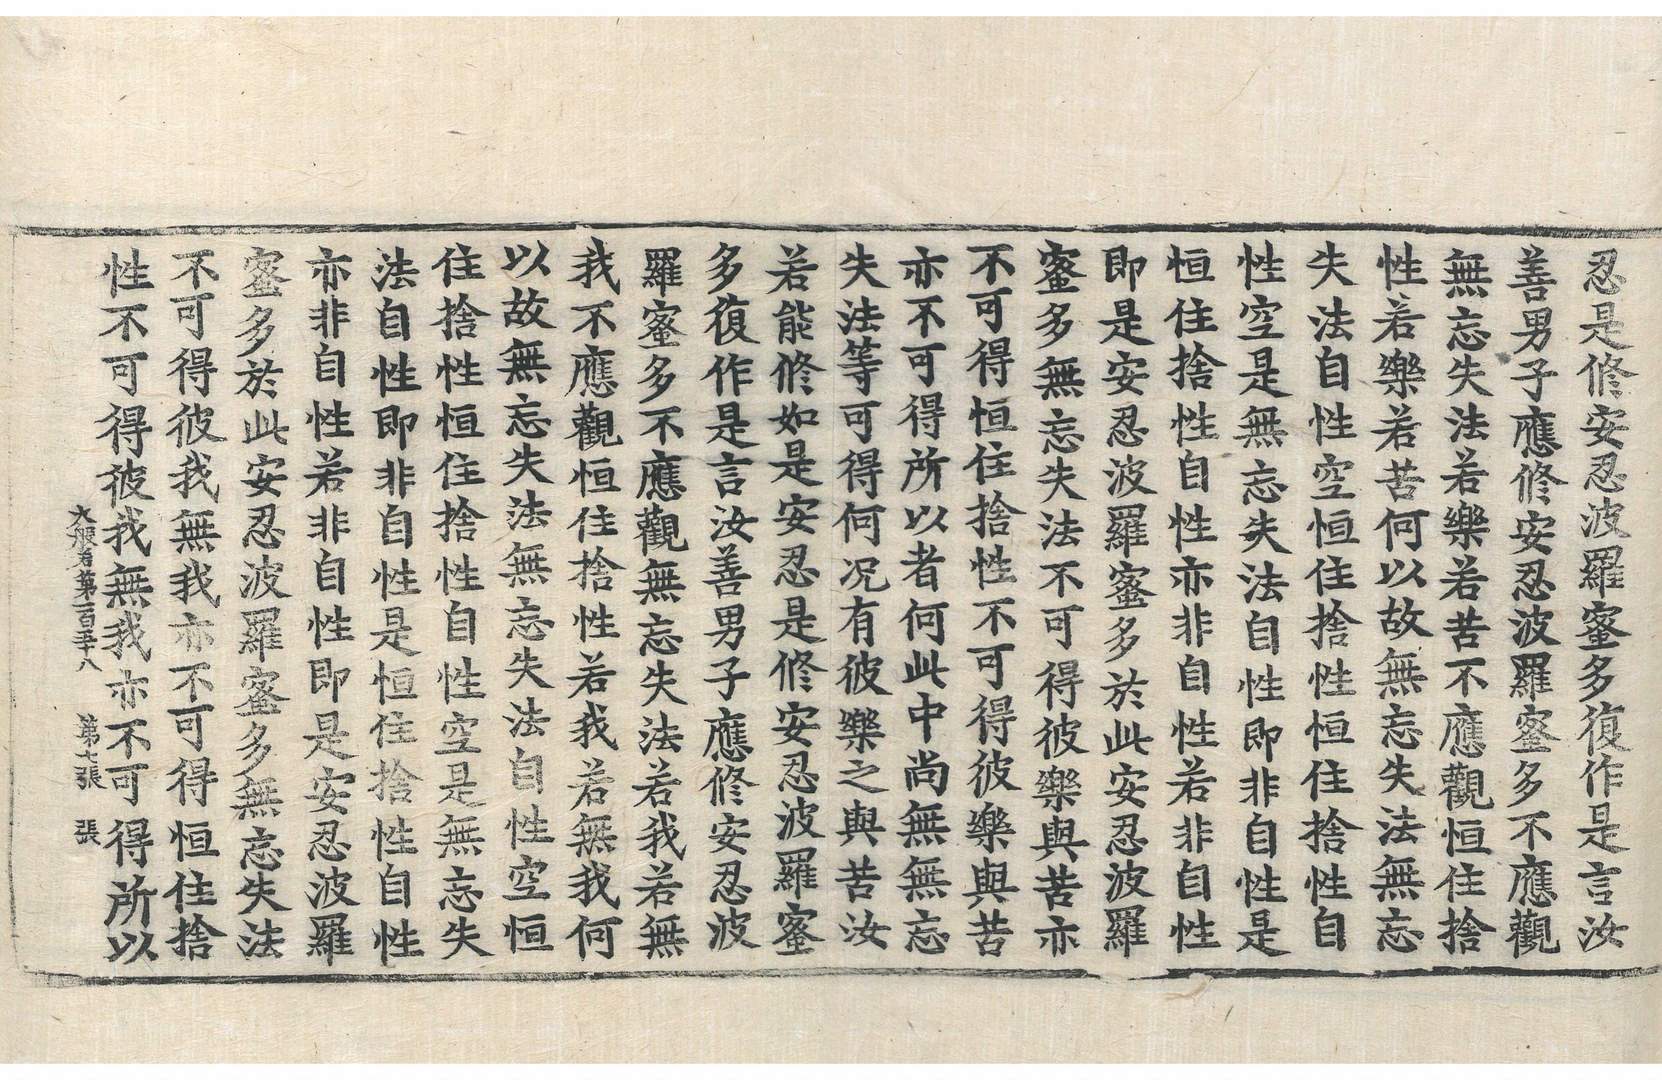 忍是修安忍波羅蜜多復作是言汝
善男子應修安忍波羅蜜多不應觀
無忘失法若樂若苦不應觀恒住捨
性若樂若苦何以故無忘失法無忘
失法自性空恒住捨性恒住捨性自
性空是無忘失法自性即非自性是
恒住捨性自性亦非自性若非自性
即是安忍波羅蜜多於此安忍波羅
蜜多無忘失法不可得彼樂與苦亦
不可得恒住捨性不可得彼樂與苦
亦不可得所以者何此中尚無無忘
失法等可得何况有彼樂之與苦汝
若能修如是安忍是修安忍波羅蜜
多復作是言汝善男子應修安忍波
羅蜜多不應觀無忘失法若我若無
我不應觀恒住捨性若我若無我何
以故無忘失法無忘失法自性空恒
住捨性恒住捨性自性空是無忘失
法自性即非自性是恒住捨性自性
亦非自性若非自性即是安忍波羅
蜜多於此安忍波羅蜜多無忘失法
不可得彼我無我亦不可得恒住捨
性不可得彼我無我亦不可得所以
大般若第一百五十八 第七張 張